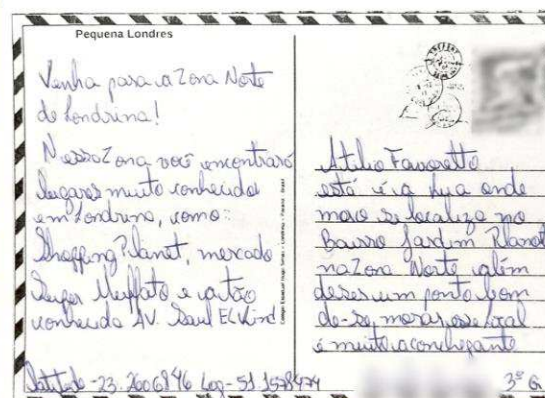 Pequena Londres
Venha para a Zona Norte
de Londrina!
Nessa Zona você encontrará
lugares muito conhecidos
em Londrina, como:
Shopping Planet, mercado
Super Muffato e a tão
conhecida AV. Saul ELKind
Latitude -23.2606846 Log -51.1578474
Colégio Estadual Hugo Simas - Londrina - Paraná - Brasil
Atilio Favoretto
está é a rua onde
moro se localiza no
Bairro Jardim Planet
na Zona Norte além
deser um ponto bom
de-se, morar esse local
é muito aconchegante
3º G